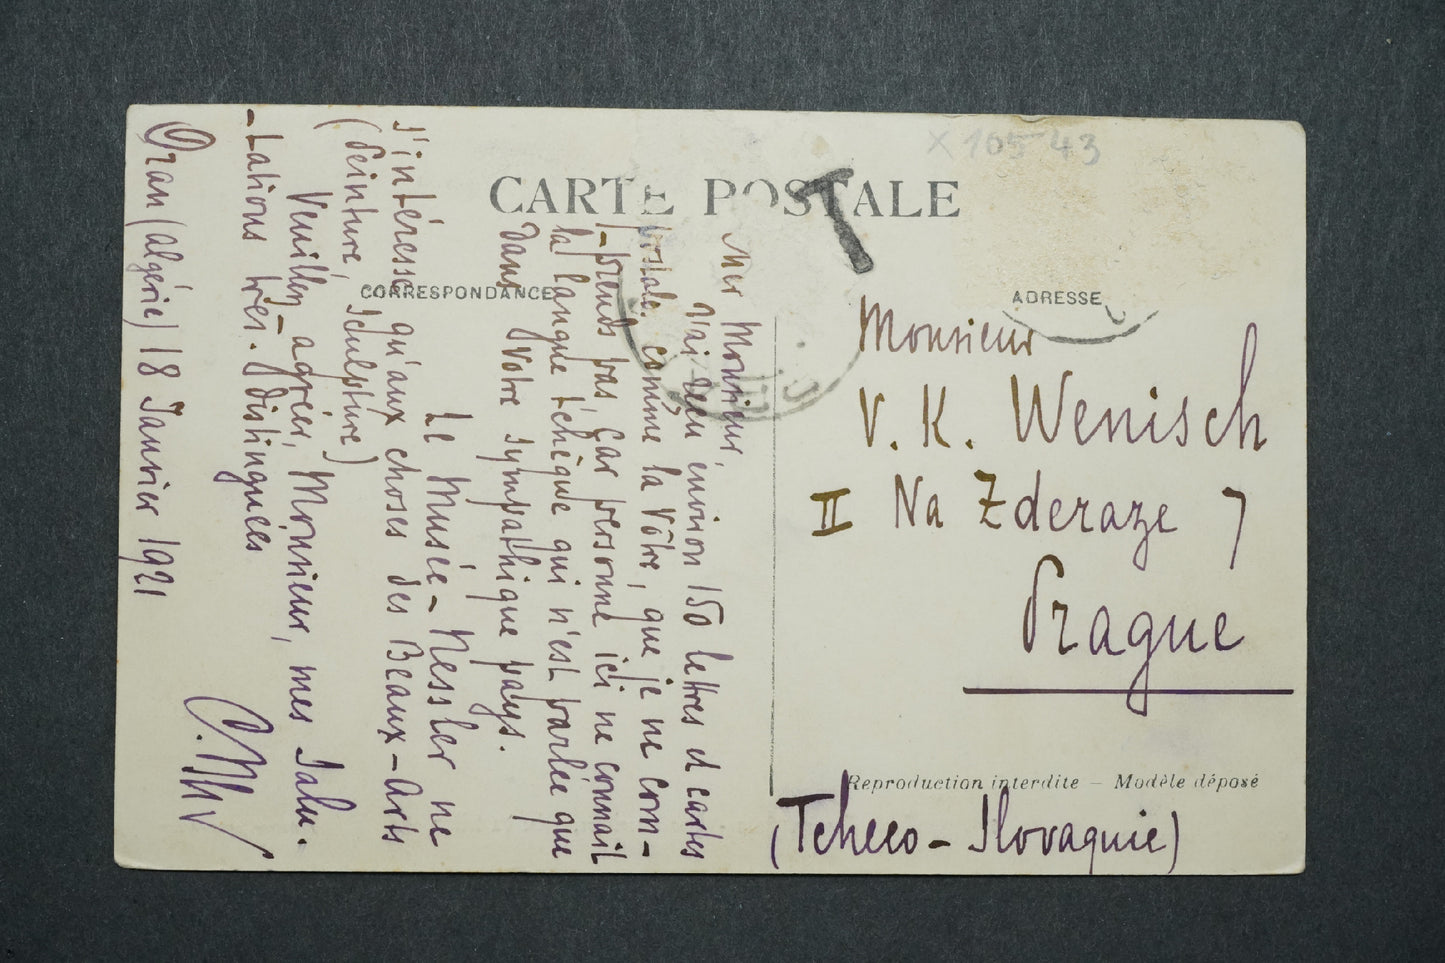 X 105 43
CARTE POSTALE
T
CORRESPONDANCE
ADRESSE
Cher Monsieur,
J'ai reçu environ 150 lettres et cartes
postale comme la vôtre, que je ne com-
-prends pas, car personne ici ne connait
la langue tchèque qui n'est parlée que
dans votre sympathique pays.
Le Musée-Nessler ne
s'intéresse qu'aux choses des Beaux-Arts
(Peinture, Sculpture)
Veuillez-agréer, Monsieur, mes salu-
-tations très-distinguées
Oran (Algérie) 18 Janvier 1921
Monsieur
V. K. Wenisch
II Na Zderaze 7
Prague
Reproduction interdite – Modèle déposé
(Tcheco-Slovaquie)